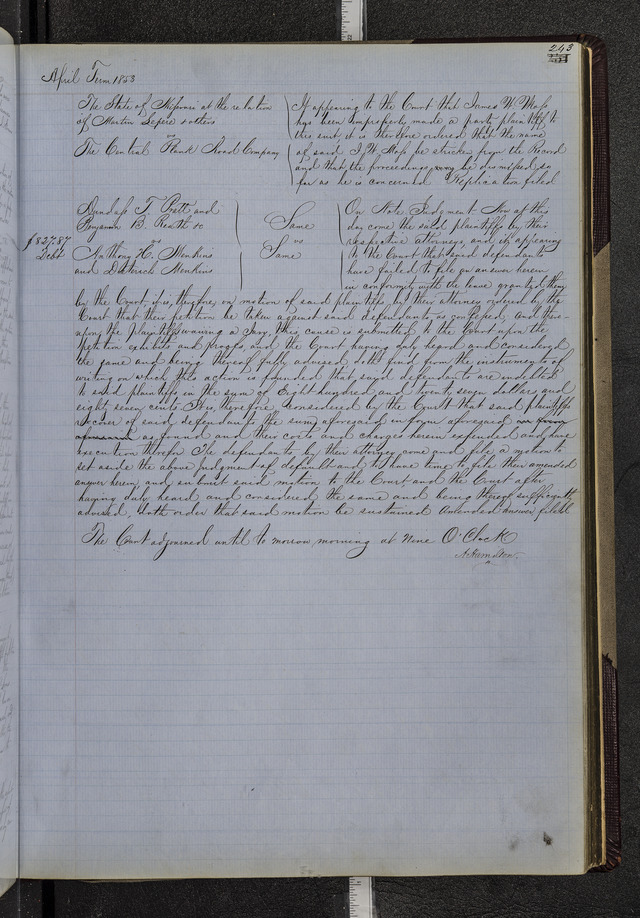 243
April Term 1853
The State of Missouri at the relation
of Martin Lepere & others
vs
The Central Plank Road Company
It appearing to the Court that James W. Moss
has been improperly made a party plaintiff to
this suit it is therefore ordered that the name
of said J. W. Moss be stricken from the Record
and that the proceedings be dismissed so
far as he is concerned Replication filed
Dundass T. Pratt and
Benjamin B. Reath
vs
Anthony H. Menkins
and Diedrich Menkins
$827.87
Debt
Same
vs
Same
On Note Judgment Now at this
day come the said plaintiffs by their
respective attorneys and it appearing
to the Court that said defendants
have failed to file an answer herein
in conformity with the leave granted them
by the Court it is, therefore, on motion of said plaintiffs by their attorney ordered by the
Court that their petition be taken against said defendants as confessed, and there-
upon the plaintiffs waiving a Jury, this cause is submitted to the Court upon the
petition exhibits and proofs and the Court having duly heard and considered
the same and being thereof fully advised doth find from the instruments of
writing on which this action is founded that said defendants are indebted
to said plaintiffs in the sum of Eight hundred and twenty seven dollars and
eighty seven cents It is therefore considered by the Court that said plaintiffs
recover of said defendants the sum aforesaid in form aforesaid
as found and their costs and charges herein expended and have
execution therefor The defendants by their attorney come and file a motion to
set aside the above judgment of default and to have time to file their amended
answer herein, and submit said motion to the Court and the Court after
having duly heard and considered the same and being thereof sufficiently
advised, doth order that said motion be sustained Amended Answer filed
The Court adjourned until to morrow morning at Nine O'Clock
A Hamilton